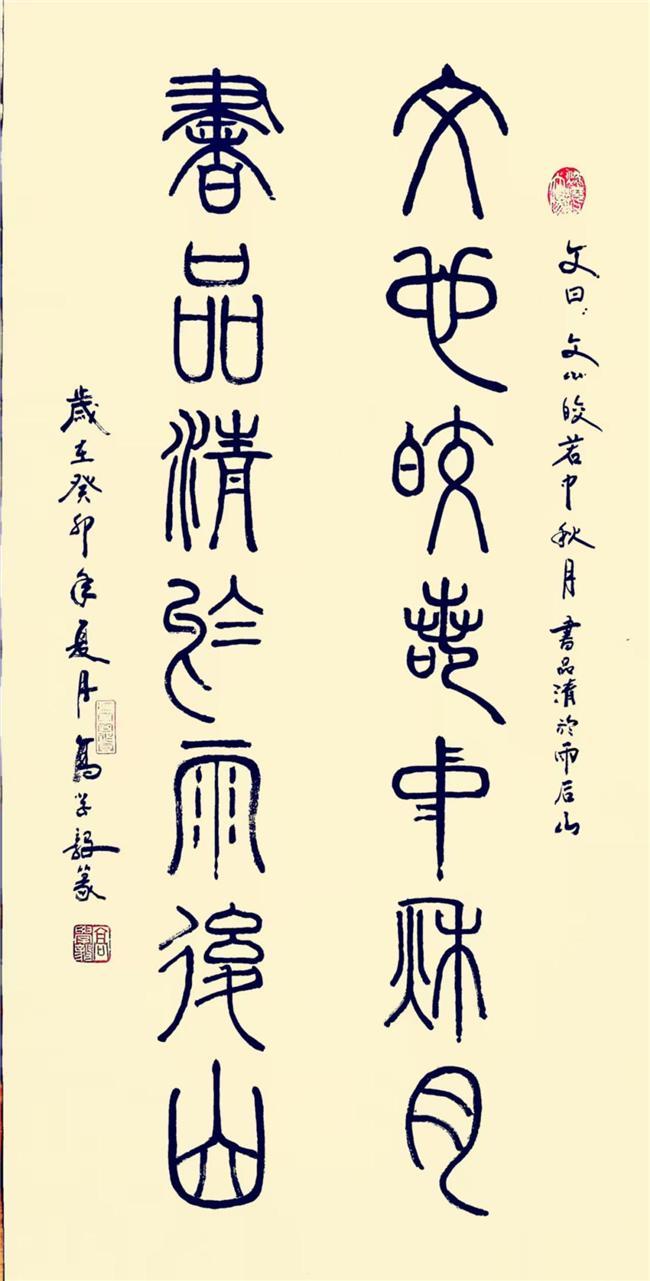 文曰：文心皎若中秋月 書品清於雨后山
文心皎若中秋月
書品清於雨後山
歲在癸卯年夏月 高学毅篆